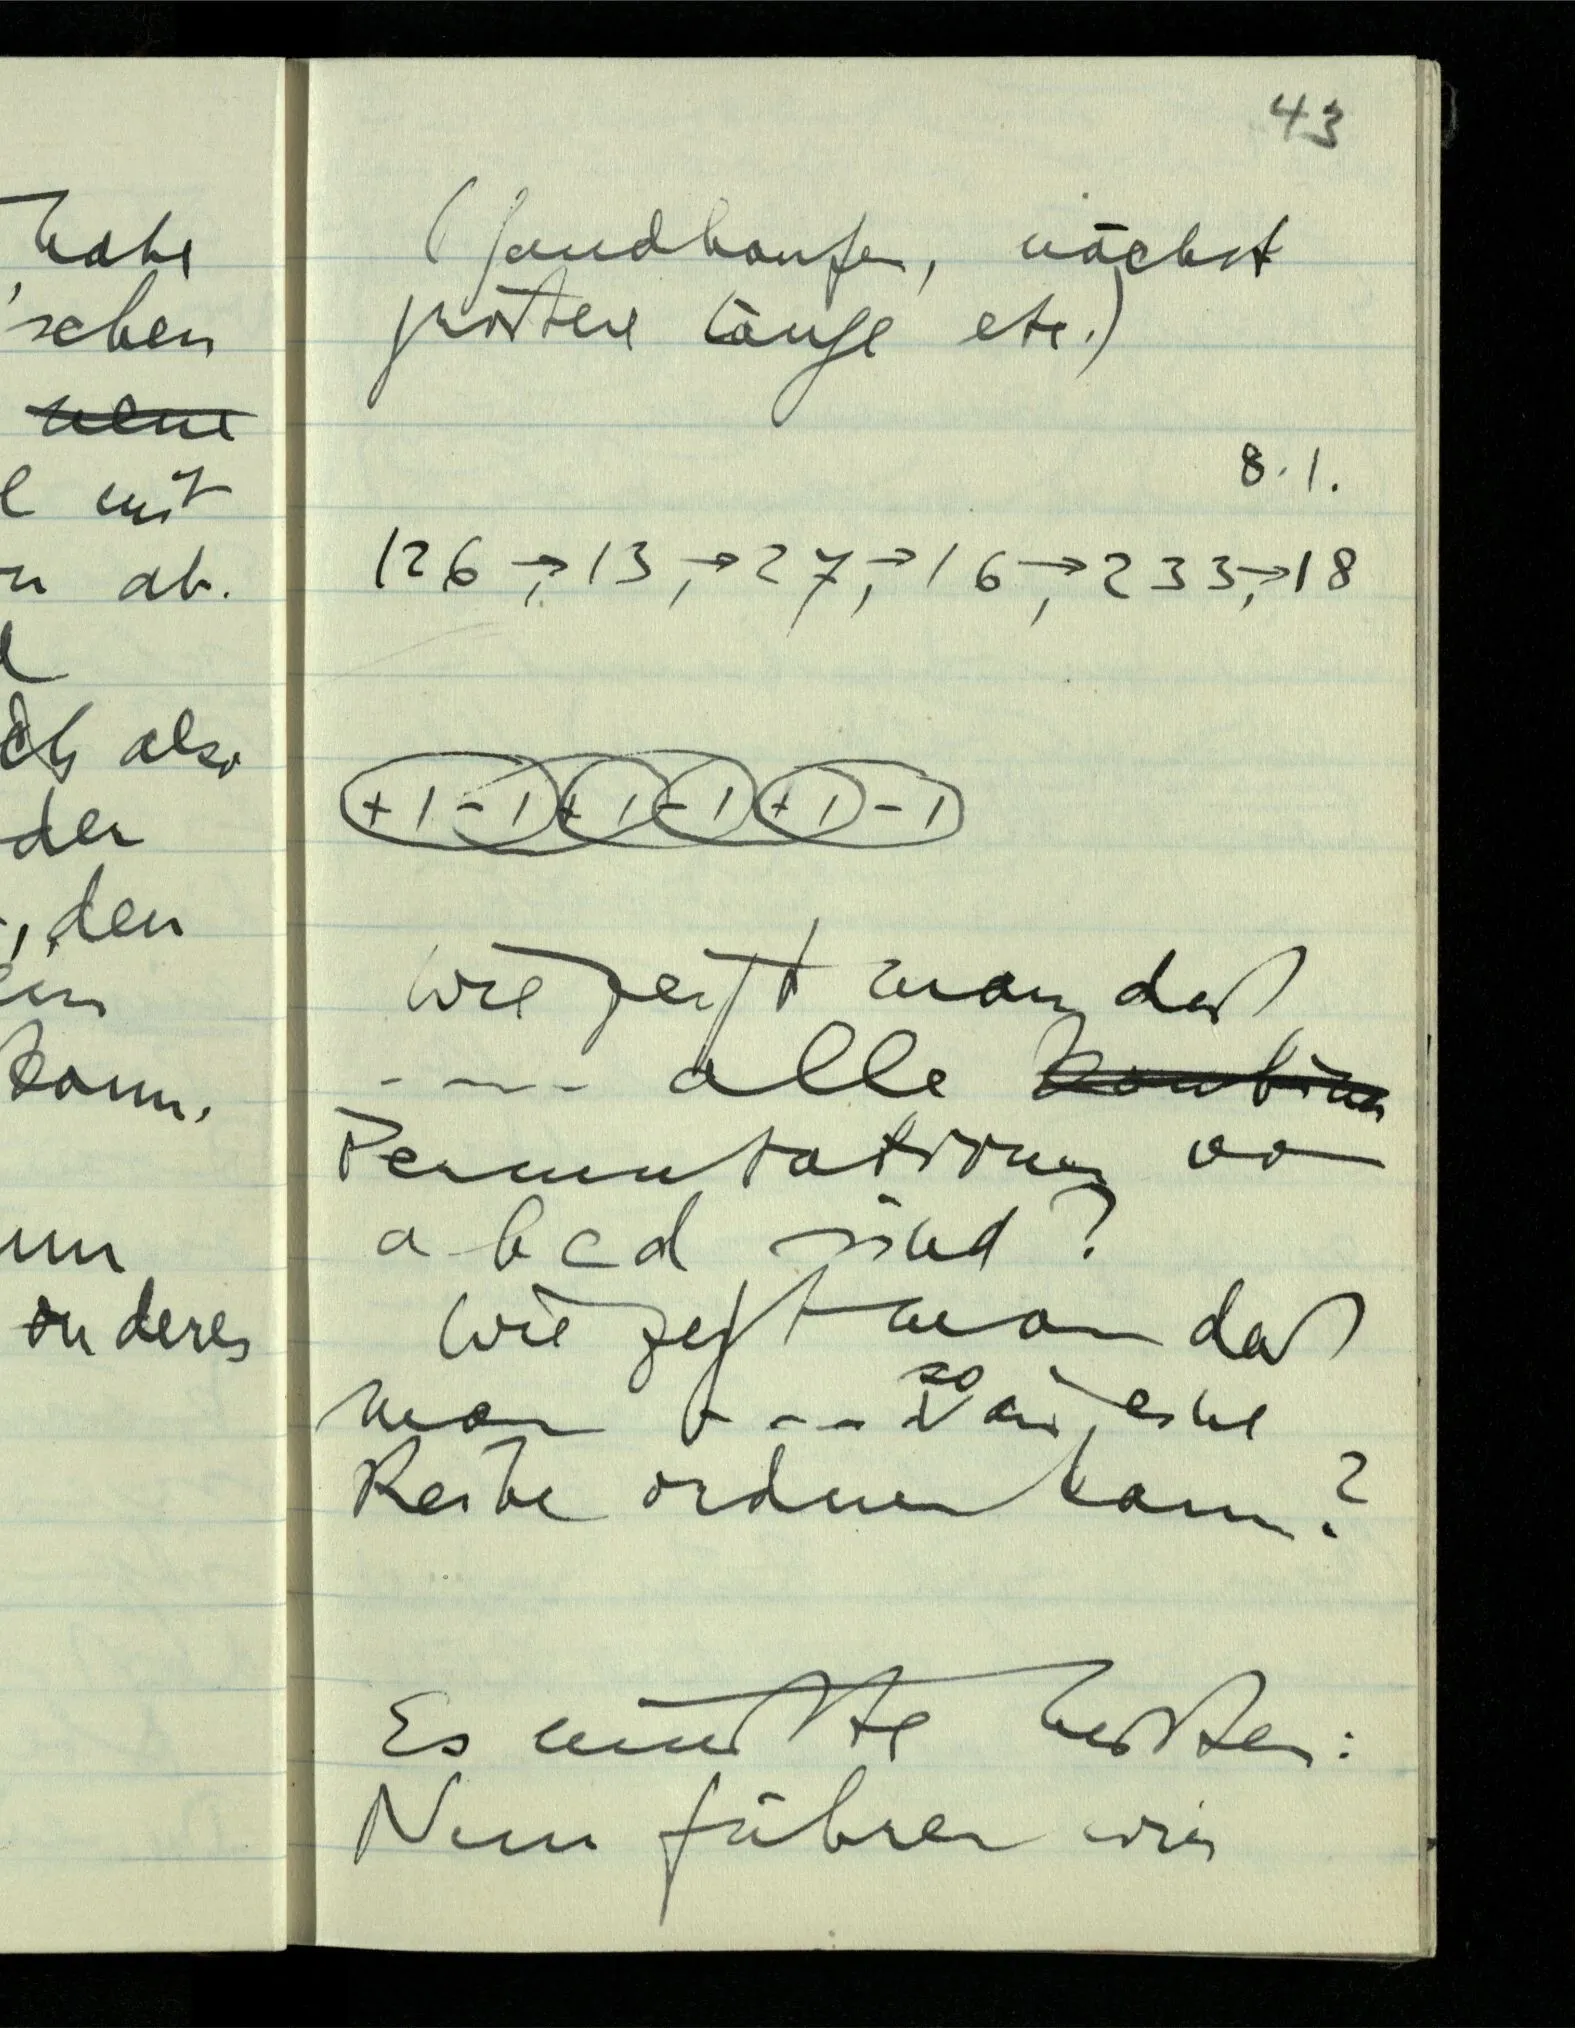 habe
'schen
neue
mit
ab.
also
der
, den
kann.
anderes
43
(Sandhaufen, nächst
größere Länge etc.)
8.1.
126 →, 13, → 27, → 16 →, 233, → 18
+1 -1 +1 -1 +1 -1
Wie zeigt man daß
---- alle Kombina
Permutationen von
a b c d sind?
Wie zeigt man daß
man ---- so in eine
Reihe ordnen kann?
Es müßte heißen:
Nun führen wir